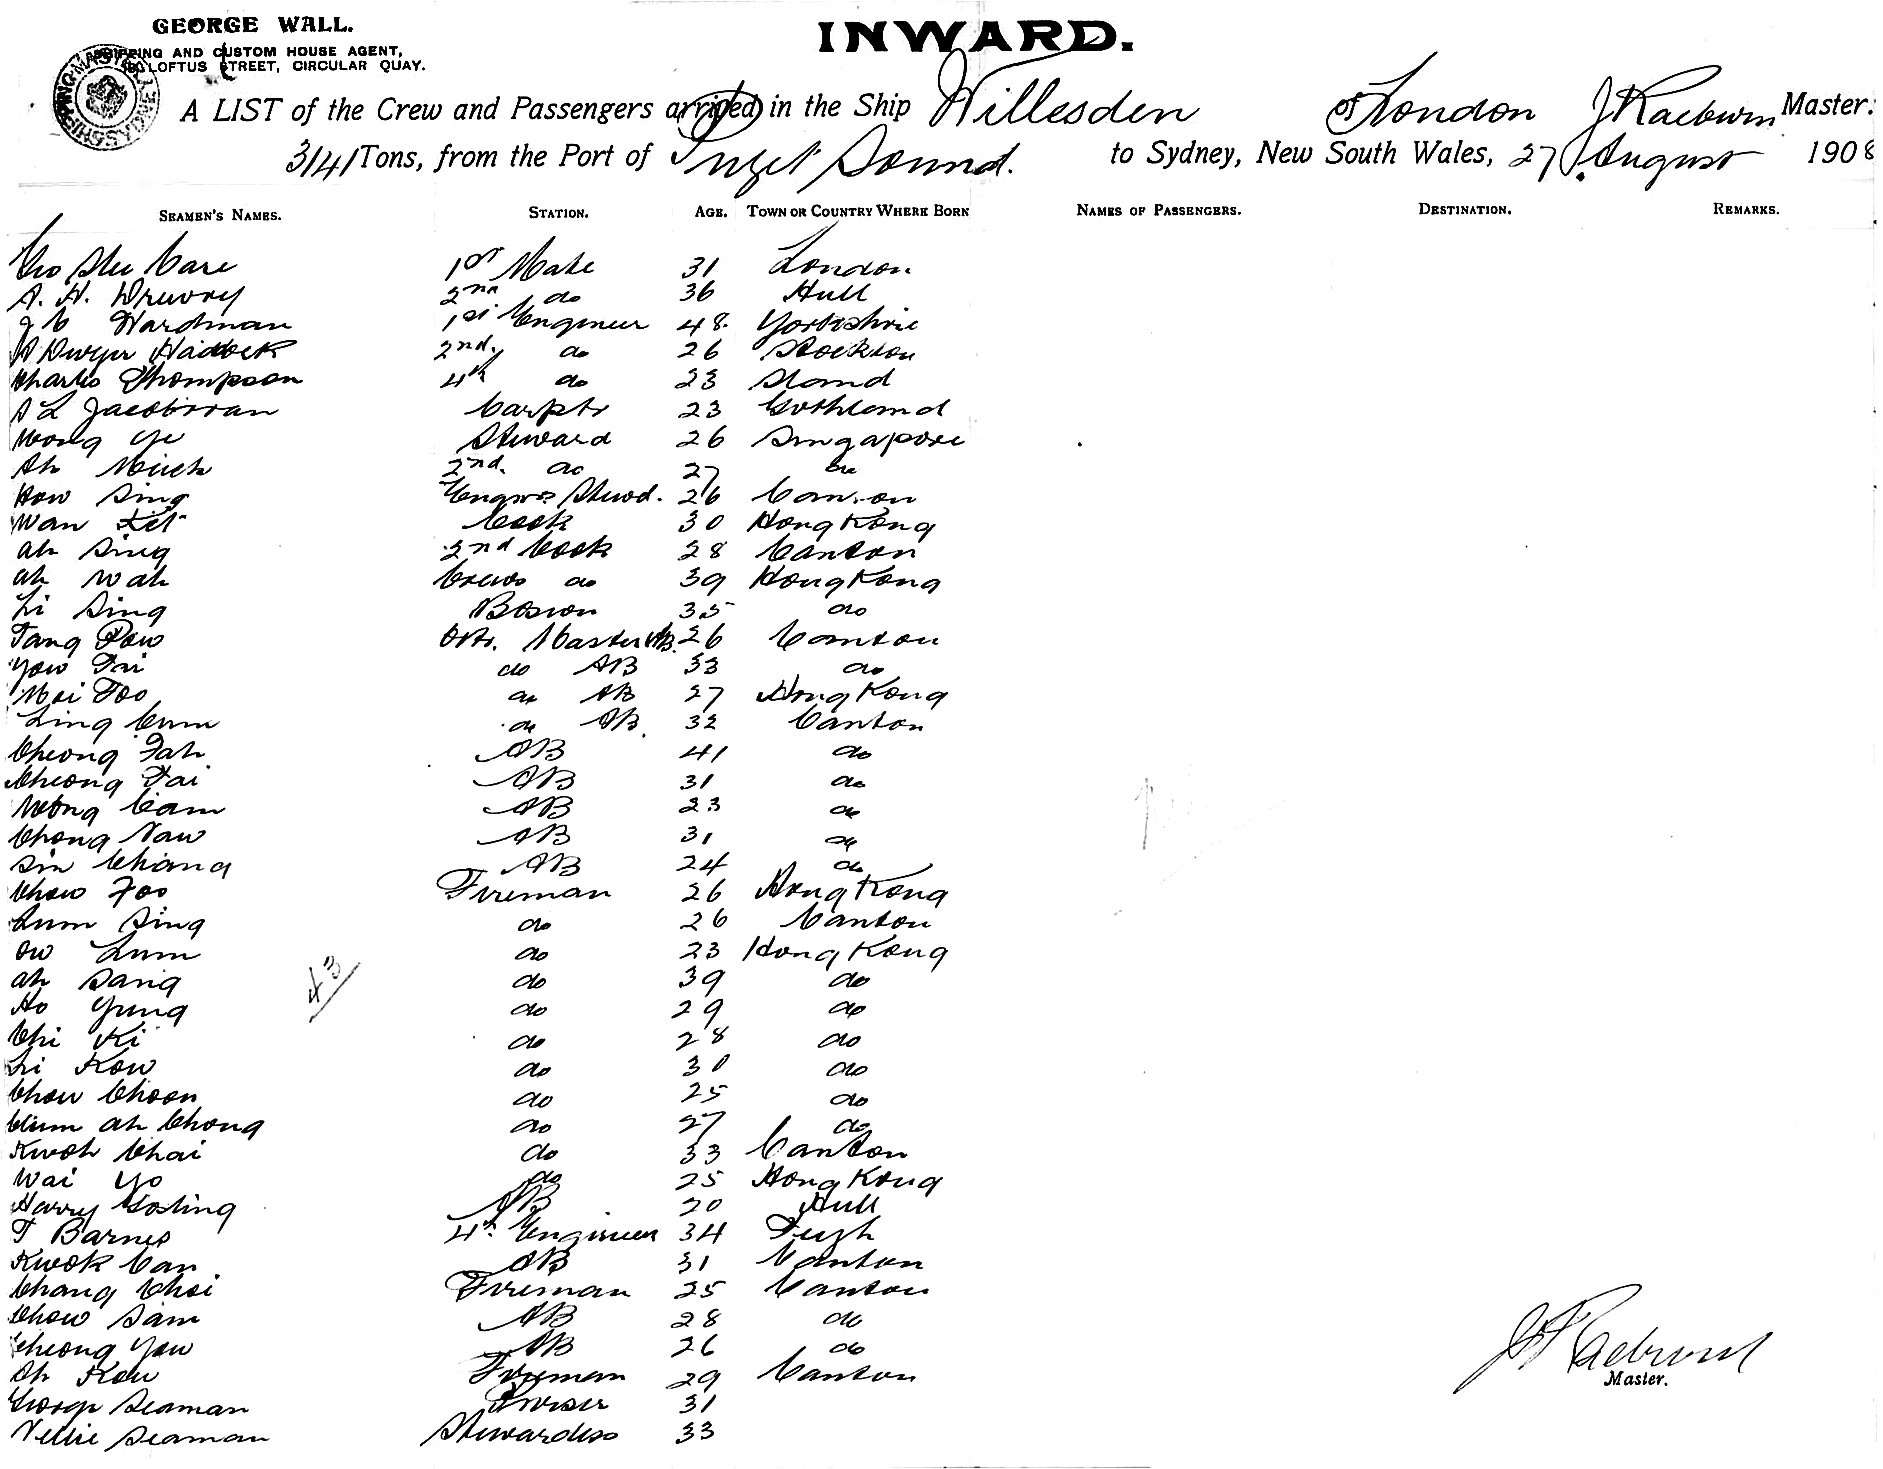 GEORGE WALL.
SHIPPING AND CUSTOM HOUSE AGENT,
LOFTUS STREET, CIRCULAR QUAY.
INWARD.
A LIST of the Crew and Passengers arrived in the Ship Willesden of London J Raeburn Master.
3141 Tons, from the Port of Puget Sound. to Sydney, New South Wales, 27 August 1908
SEAMEN'S NAMES. STATION. AGE. TOWN OR COUNTRY WHERE BORN NAMES OF PASSENGERS. DESTINATION. REMARKS.
Geo Care 1st Mate 31 London
A. H. Drewry 2nd do 36 Hull
J C Hardman 1st Engineer 48 Yorkshire
Haddock 2nd. do 26 Stockton
Charles Thompson 4th do 23
A L Carptr 23 Gothland
Wong Ye Steward 26 Singapore
Ah 2nd. do 27 do
How Sing Engnrs Stewd. 26 Canton
Wan Kit Cook 30 Hong Kong
Ah Sing 2nd Cook 28 Canton
Ah Wah Crews do 39 Hong Kong
Li Sing Bosun 35 do
Tang Pow Qtr. Master AB. 26 Canton
Yow Tai do AB 33 do
Mai Too do AB 27 Hong Kong
Ling Cum do AB. 32 Canton
Cheong Fah AB 41 do
Cheong Tai AB 31 do
Wong Cam AB 23 do
Chong Naw AB 31 do
Sin Chang AB 24 do
Chow Foo Fireman 26 Hong Kong
Lum Sing do 26 Canton
Ow Lum do 23 Hong Kong
Ah Sang do 39 do
43
Ho Yung do 29 do
Chi Ki do 28 do
Li Kow do 30 do
Chow Choon do 25 do
Ah Chong do 27 do
Kwok Chai do 33 Canton
Wai Yo do 25 Hong Kong
Harry Gosling AB 20 Hull
T Barnes 4th Engineer 34 Leigh
Kwok Can AB 31 Canton
Chang Choi Fireman 25 Canton
Chow Sam AB 28 do
Cheong Yow AB 26 do
Ah Kow Fireman 29 Canton
George Seaman Purser 31
Nellie Seaman Stewardess 33
J Raeburn
Master.